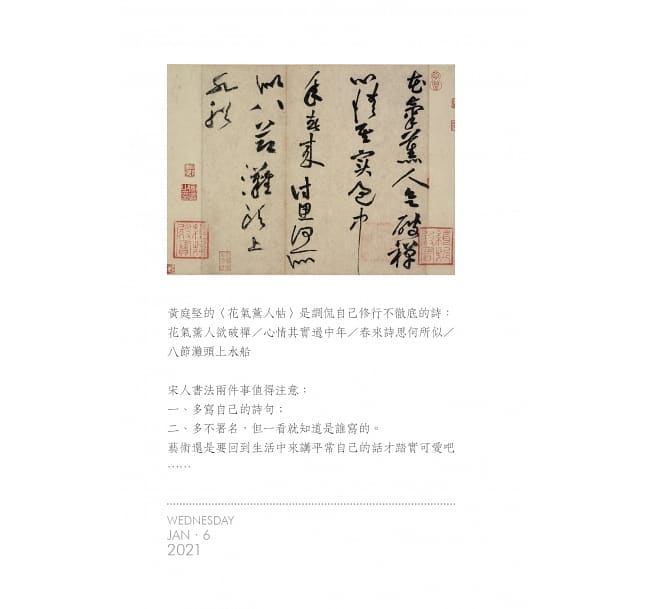 花氣薰人欲破禪
心情其實過中
年春來詩思何所
似八節灘頭上
水船
黃庭堅的〈花氣薰人帖〉是調侃自己修行不徹底的詩：
花氣薰人欲破禪／心情其實過中年／春來詩思何所似／
八節灘頭上水船
宋人書法兩件事值得注意：
一、多寫自己的詩句；
二、多不署名，但一看就知道是誰寫的。
藝術還是要回到生活中來講平常自己的話才踏實可愛吧
……
WEDNESDAY
JAN · 6
2021